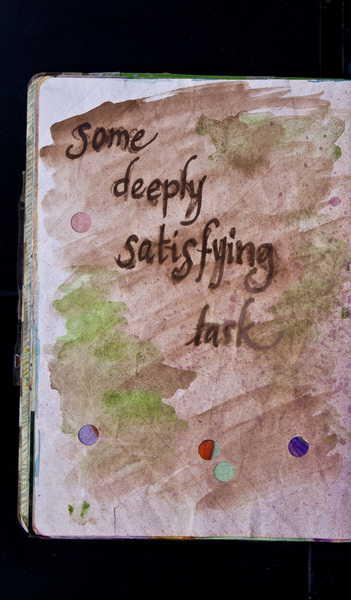 some
deeply
satisfying
task